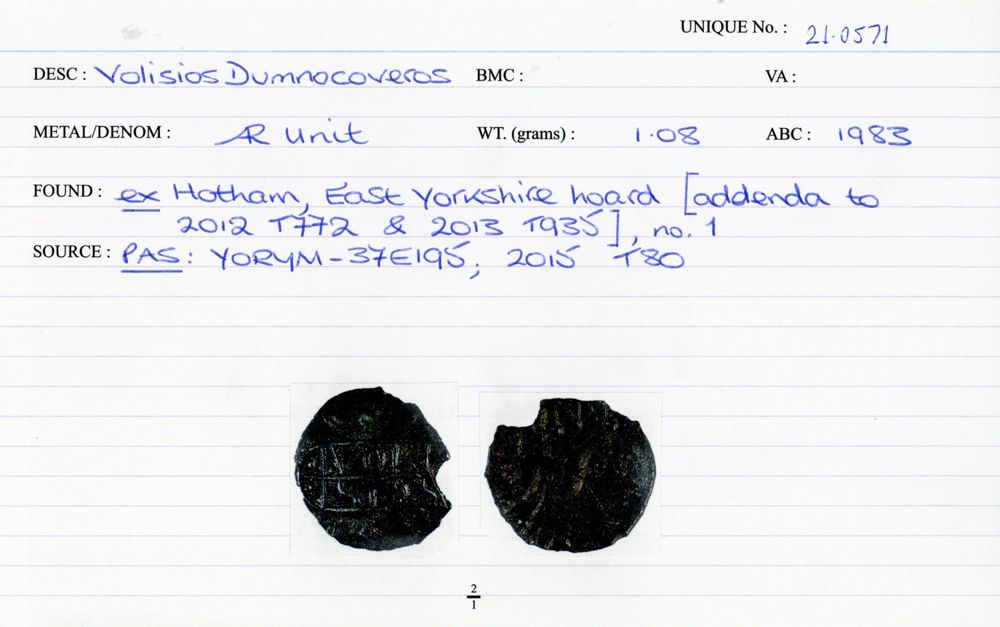 UNIQUE No. : 21.0571
DESC : Volisios Dumnocoveros BMC : VA :
METAL/DENOM : AR Unit WT. (grams) : 1.08 ABC : 1983
FOUND : ex Hotham, East Yorkshire hoard [addenda to
2012 T772 & 2013 T935], no. 1
SOURCE : PAS: YORYM-37E195; 2015 T80
2
1